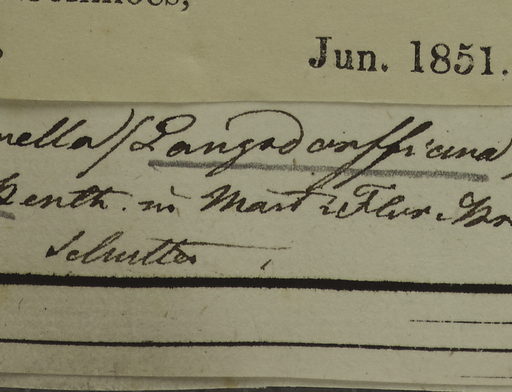 Jun. 1851.
nella / Langsdorffiana
Benth. in Mart. Flor. Br
Schultes